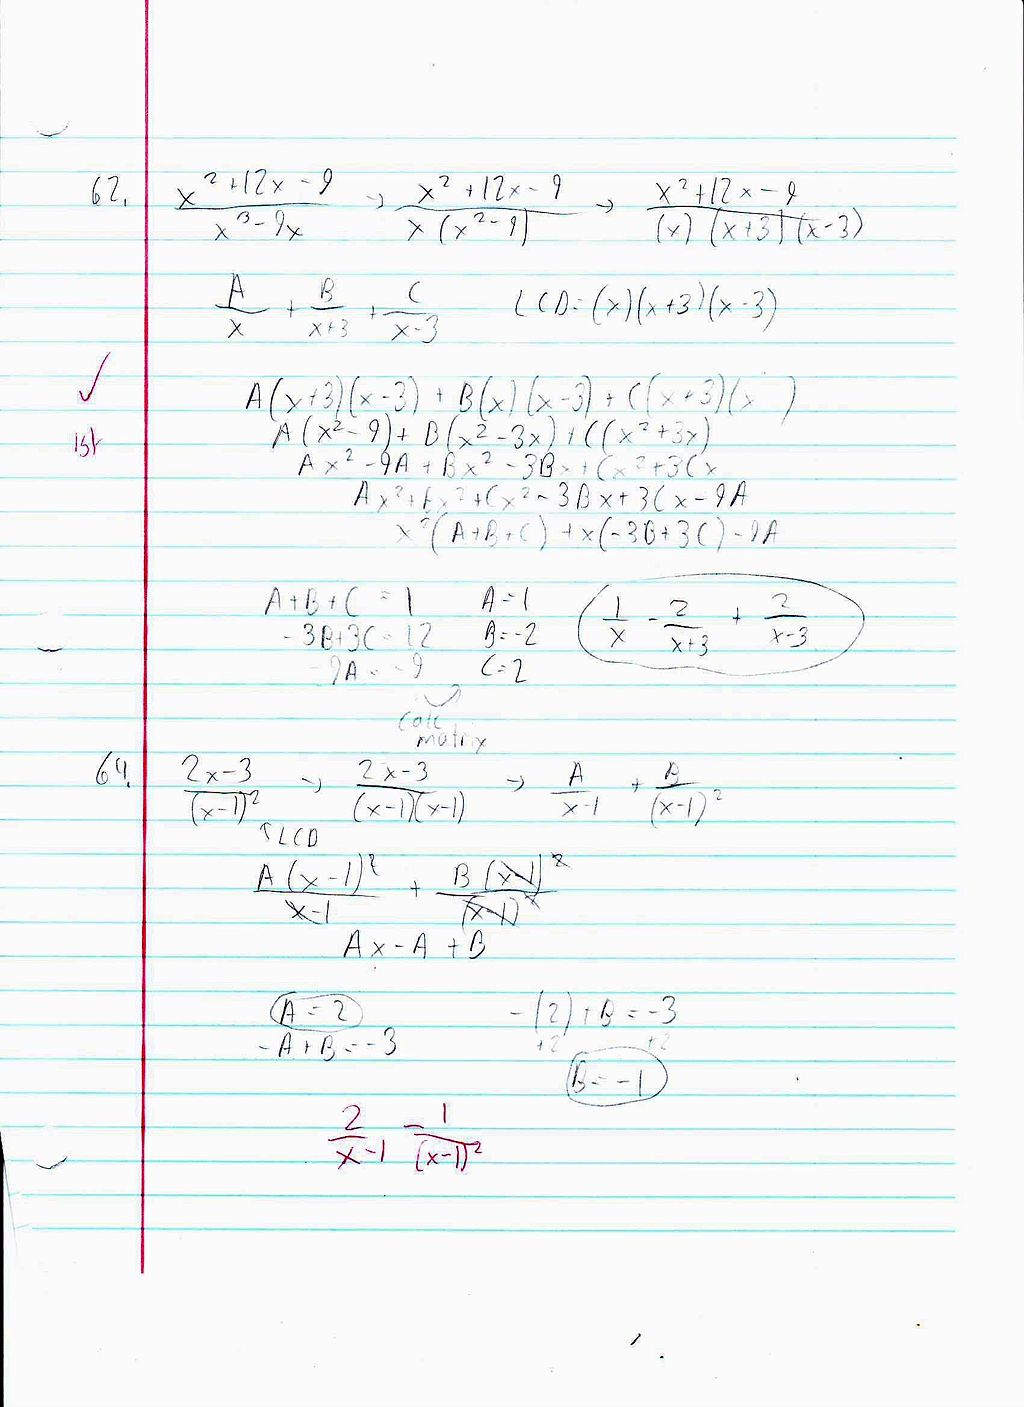 62. (x²+12x-9)/(x³-9x) → (x²+12x-9)/(x(x²-9)) → (x²+12x-9)/((x)(x+3)(x-3))
A/x + B/(x+3) + C/(x-3) LCD=(x)(x+3)(x-3)
✓ A(x+3)(x-3) + B(x)(x-3) + C(x+3)(x )
A(x²-9) + B(x²-3x) + C(x²+3x)
1st
Ax²-9A+Bx²-3Bx+Cx²+3Cx
Ax²+Bx²+Cx²-3Bx+3Cx-9A
x²(A+B+C)+x(-3B+3C)-9A
A+B+C=1 A=1 1/x - 2/(x+3) + 2/(x-3)
-3B+3C=12 B=-2
-9A=-9 C=2
Calc
matrix
64. (2x-3)/(x-1)² → (2x-3)/((x-1)(x-1)) → A/(x-1) + B/(x-1)²
↑LCD
A(x-1)²/(x-1) + B(x-1)²/(x-1)²
Ax-A+B
A=2 -(2)+B=-3
-A+B=-3 +2 +2
B=-1
2/(x-1) - 1/(x-1)²